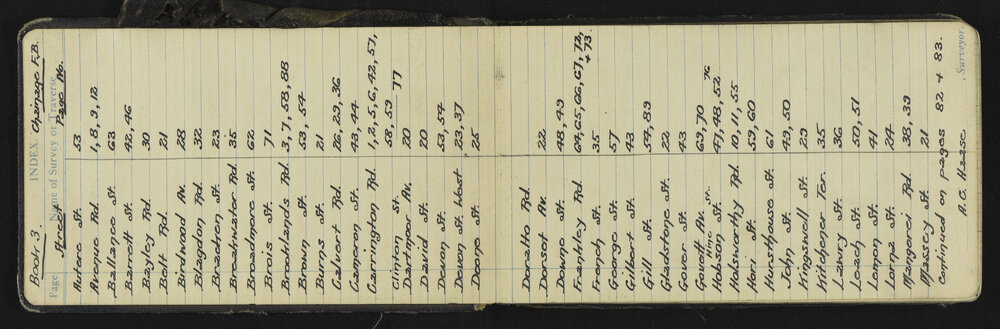 Book 3. INDEX. Chainage F.B.
Page Name of Survey or Traverse.
Street Page No.
Autere St. 53
Avenue Rd. 1, 8, 9, 12
Ballance St. 63
Barrett St. 42, 46
Bayley Rd. 30
Belt Rd. 21
Birdwood Av. 28
Blagdon Rd. 32
Bracken St. 23
Breakwater Rd. 35
Broadmore St. 62
Brois St. 71
Brooklands Rd. 3, 7, 58, 88
Brown St. 53, 54
Burns St. 21
Calvert Rd. 26, 29, 36
Cameron St. 43, 44
Carrington Rd. 1, 2, 5, 6, 42, 57,
58, 59 77
Clinton St.
Dartmoor Av. 20
David St. 20
Devon St. 53, 54
Devon St. West 23, 37
Doone St. 25
Doralto Rd.
Dorset Av. 22
Downe St. 48, 49
Frankley Rd. 64, 65, 66, 67, 72,
+ 73
French St. 35
George St. 57
Gilbert St. 43
Gill St. 54, 89
Gladstone St. 22
Gover St. 43
Govett Av. 69, 70
Hine St. 76
Hobson St. 47, 48, 52
Holsworthy Rd. 10, 11, 55
Hori St. 59, 60
Hursthouse St. 61
John St. 49, 50
Kingswell St. 29
Kitchener Ter. 35
Lawry St. 36
Leach St. 50, 51
Lemon St. 41
Lorna St. 24
Mangorei Rd. 38, 39
Massey St. 21
Continued on pages 82 + 83.
Surveyor.